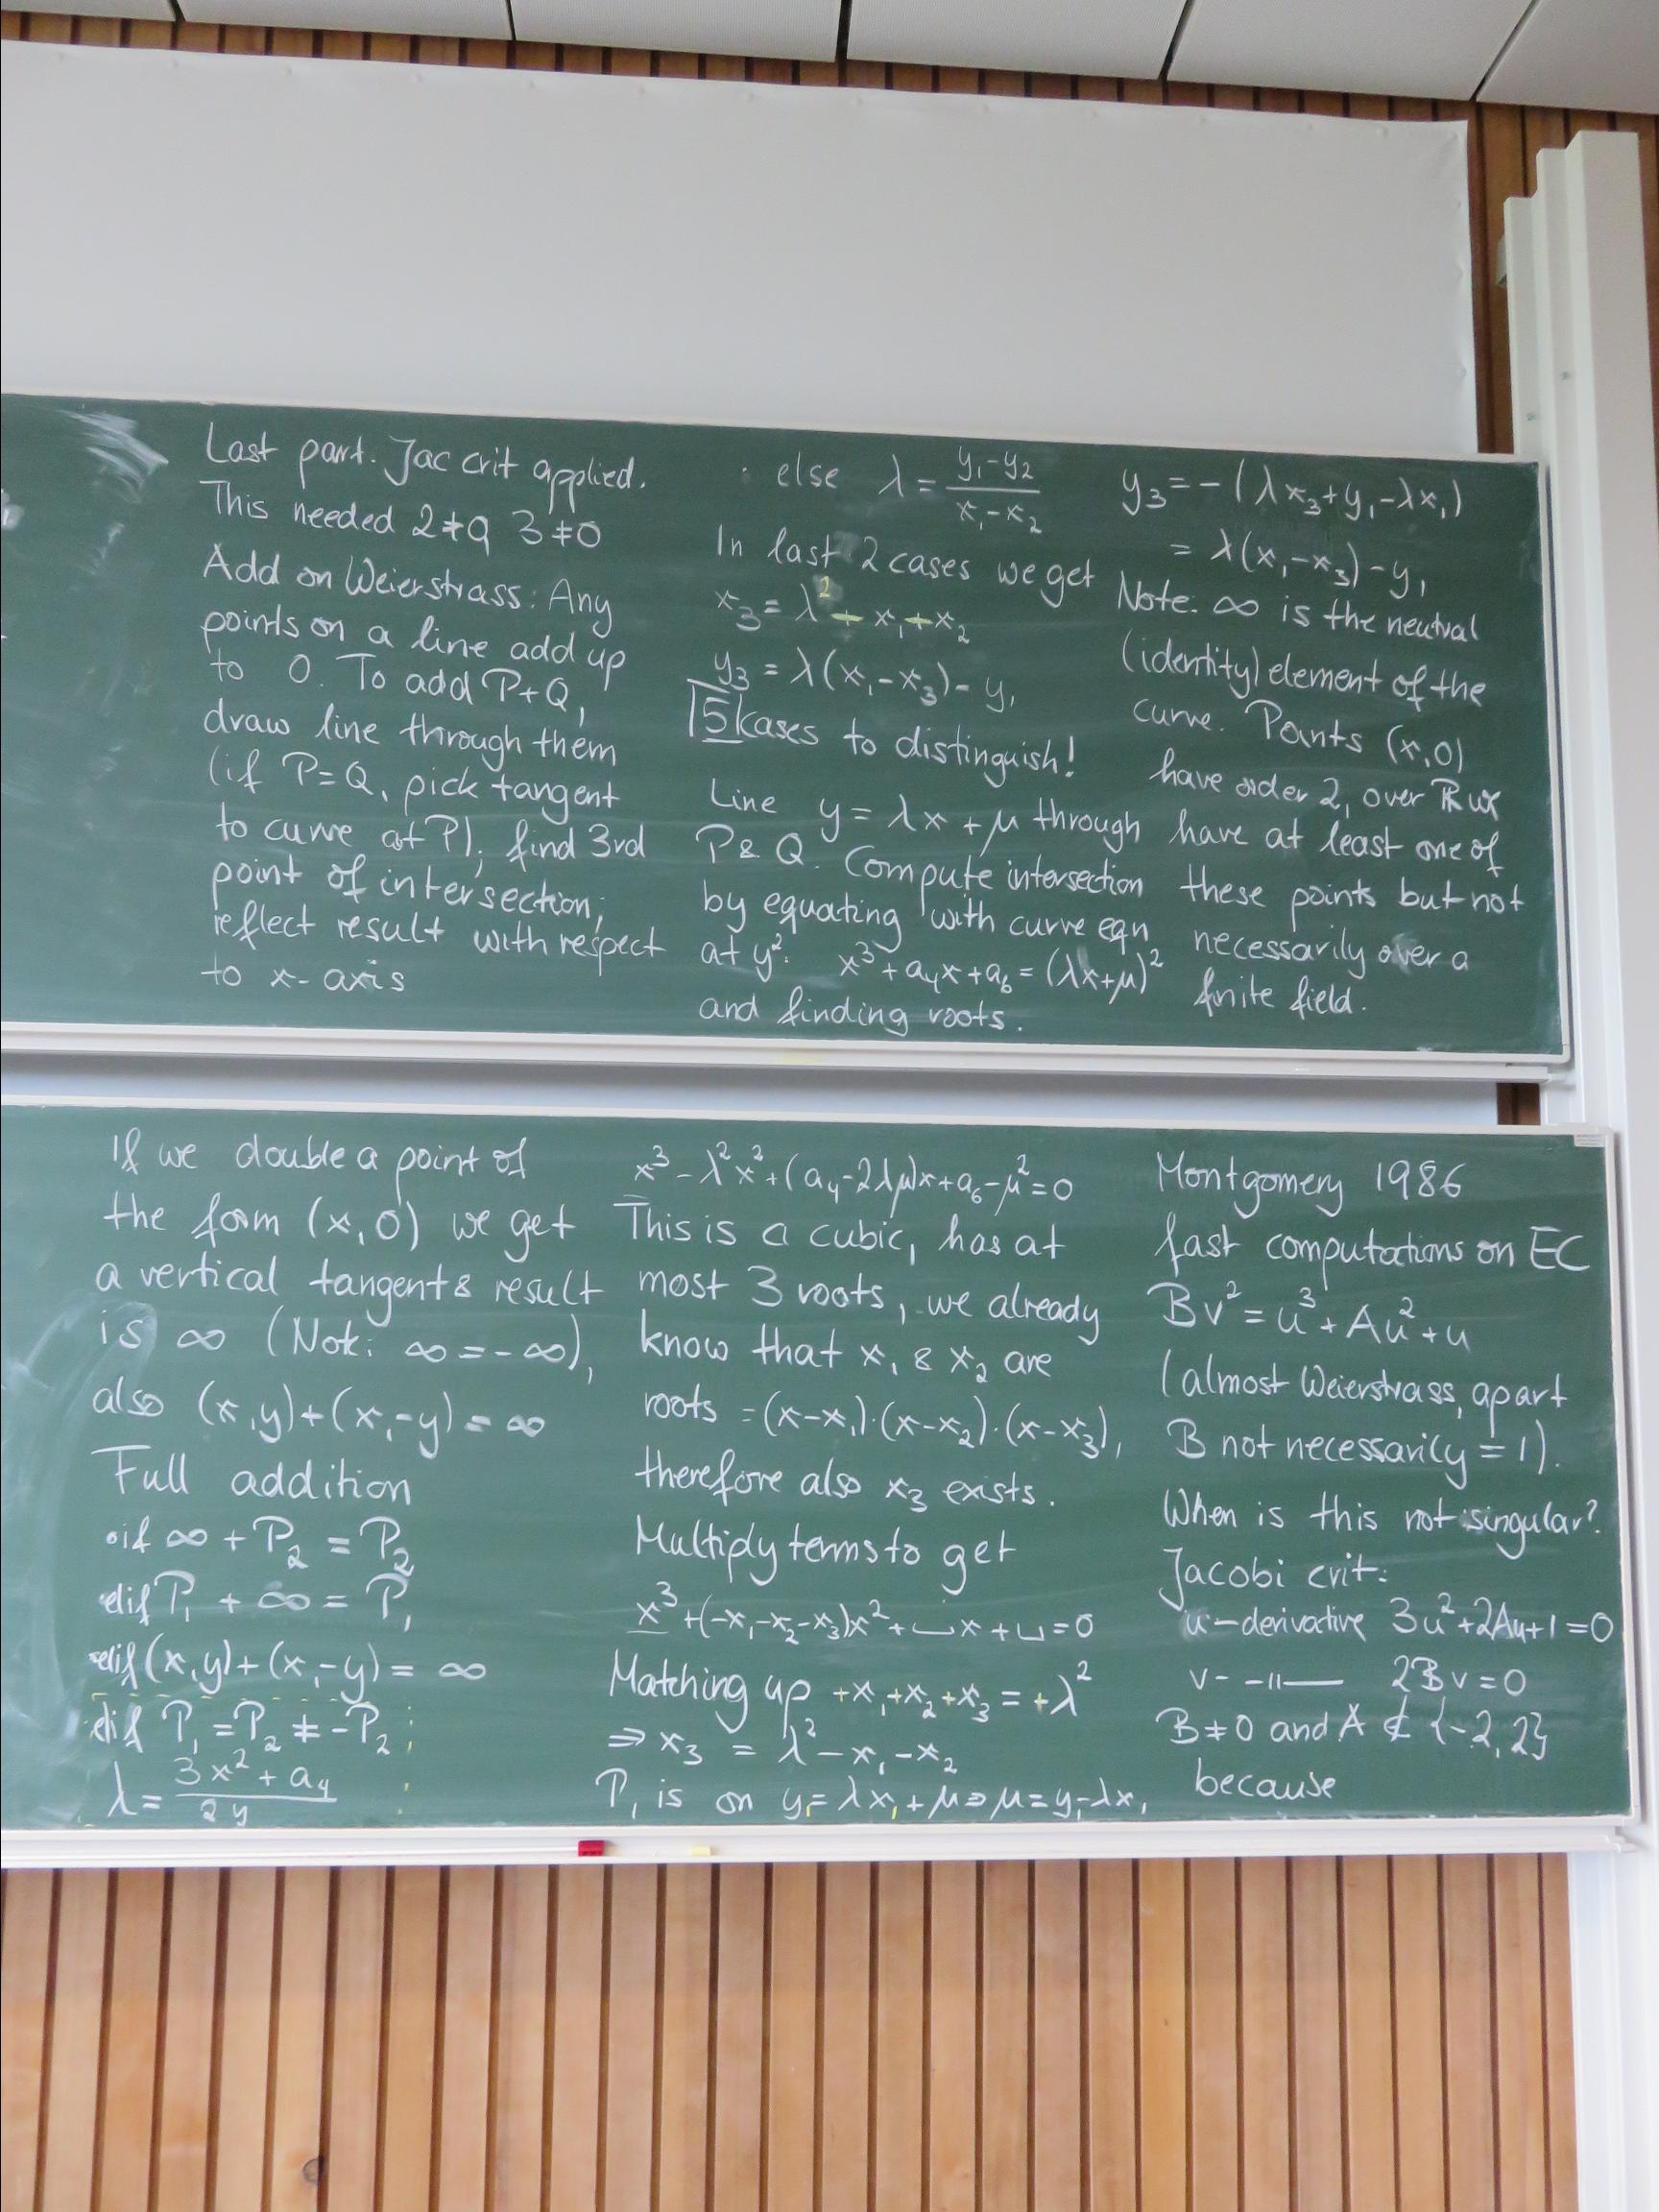 Last part. Jac crit applied.
This needed 2≠0, 3≠0
Add on Weierstrass: Any
points on a line add up
to 0. To add P+Q,
draw line through them
(if P=Q, pick tangent
to curve at P), find 3rd
point of intersection;
reflect result with respect
to x-axis
· else λ = (y₁-y₂)/(x₁-x₂)
In last 2 cases we get
x₃ = λ² - x₁ - x₂
y₃ = λ(x₁-x₃)-y₁
5 cases to distinguish!
Line y = λx + μ through
P & Q. Compute intersection
by equating with curve eqn
at y²: x³+a₄x+a₆ = (λx+μ)²
and finding roots.
y₃ = -(λx₃+y₁-λx₁)
= λ(x₁-x₃)-y₁
Note: ∞ is the neutral
(identity) element of the
curve. Points (x,0)
have order 2, over ℝ we
have at least one of
these points but not
necessarily over a
finite field.
If we double a point of
the form (x,0) we get
a vertical tangent & result
is ∞ (Note: ∞ = -∞),
also (x,y)+(x,-y) = ∞
Full addition
· if ∞ + P₂ = P₂
· elif P₁ + ∞ = P₁
· elif (x,y)+(x,-y) = ∞
elif P₁ = P₂ ≠ -P₂
λ = (3x²+a₄)/2y
x³-λ²x²+(a₄-2λμ)x+a₆-μ²=0
This is a cubic, has at
most 3 roots, we already
know that x₁ & x₂ are
roots = (x-x₁)·(x-x₂)·(x-x₃),
therefore also x₃ exists.
Multiply terms to get
x³+(-x₁-x₂-x₃)x²+⎵x+⎵=0
Matching up +x₁+x₂+x₃=+λ²
⇒ x₃ = λ²-x₁-x₂
P₁ is on y₁=λx₁+μ⇒μ=y₁-λx₁
Montgomery 1986
fast computations on EC
Bv²=u³+Au²+u
(almost Weierstrass, apart
B not necessarily = 1).
When is this not singular?
Jacobi crit:
u-derivative 3u²+2Au+1=0
v- -||- 2Bv=0
B≠0 and A ∉ {-2,2}
because